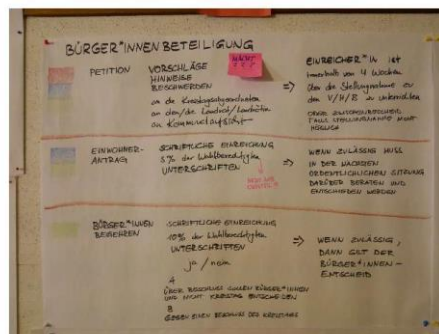 BÜRGER*INNENBETEILIGUNG
PETITION
VORSCHLÄGE
HINWEISE
BESCHWERDEN
an die Kreistagsabgeordneten
an den/die Landrat/Landrätin
an Kommunalaufsicht
⇒
EINREICHER*IN ist
innerhalb von 4 Wochen
über die Stellungnahme zu
den V/H/B zu unterrichten
ODER ZWISCHENBESCHEID,
FALLS STELLUNGNAHME NICHT
MÖGLICH
EINWOHNER-
ANTRAG
SCHRIFTLICHE EINREICHUNG
5% der Wahlberechtigten
UNTERSCHRIFTEN
⇒
WENN ZULÄSSIG MUSS
IN DER NÄCHSTEN
ORDENTLICHEN SITZUNG
DARÜBER BERATEN UND
ENTSCHIEDEN WERDEN
BÜRGER*INNEN
BEGEHREN
SCHRIFTLICHE EINREICHUNG
10% der Wahlberechtigten
UNTERSCHRIFTEN
ja / nein
⇒
WENN ZULÄSSIG,
DANN GILT DER
BÜRGER*INNEN-
ENTSCHEID
A
ÜBER BESCHLUSS SOLLEN BÜRGER*INNEN
UND NICHT KREISTAG ENTSCHEIDEN
B
GEGEN EINEN BESCHLUSS DES KREISTAGES